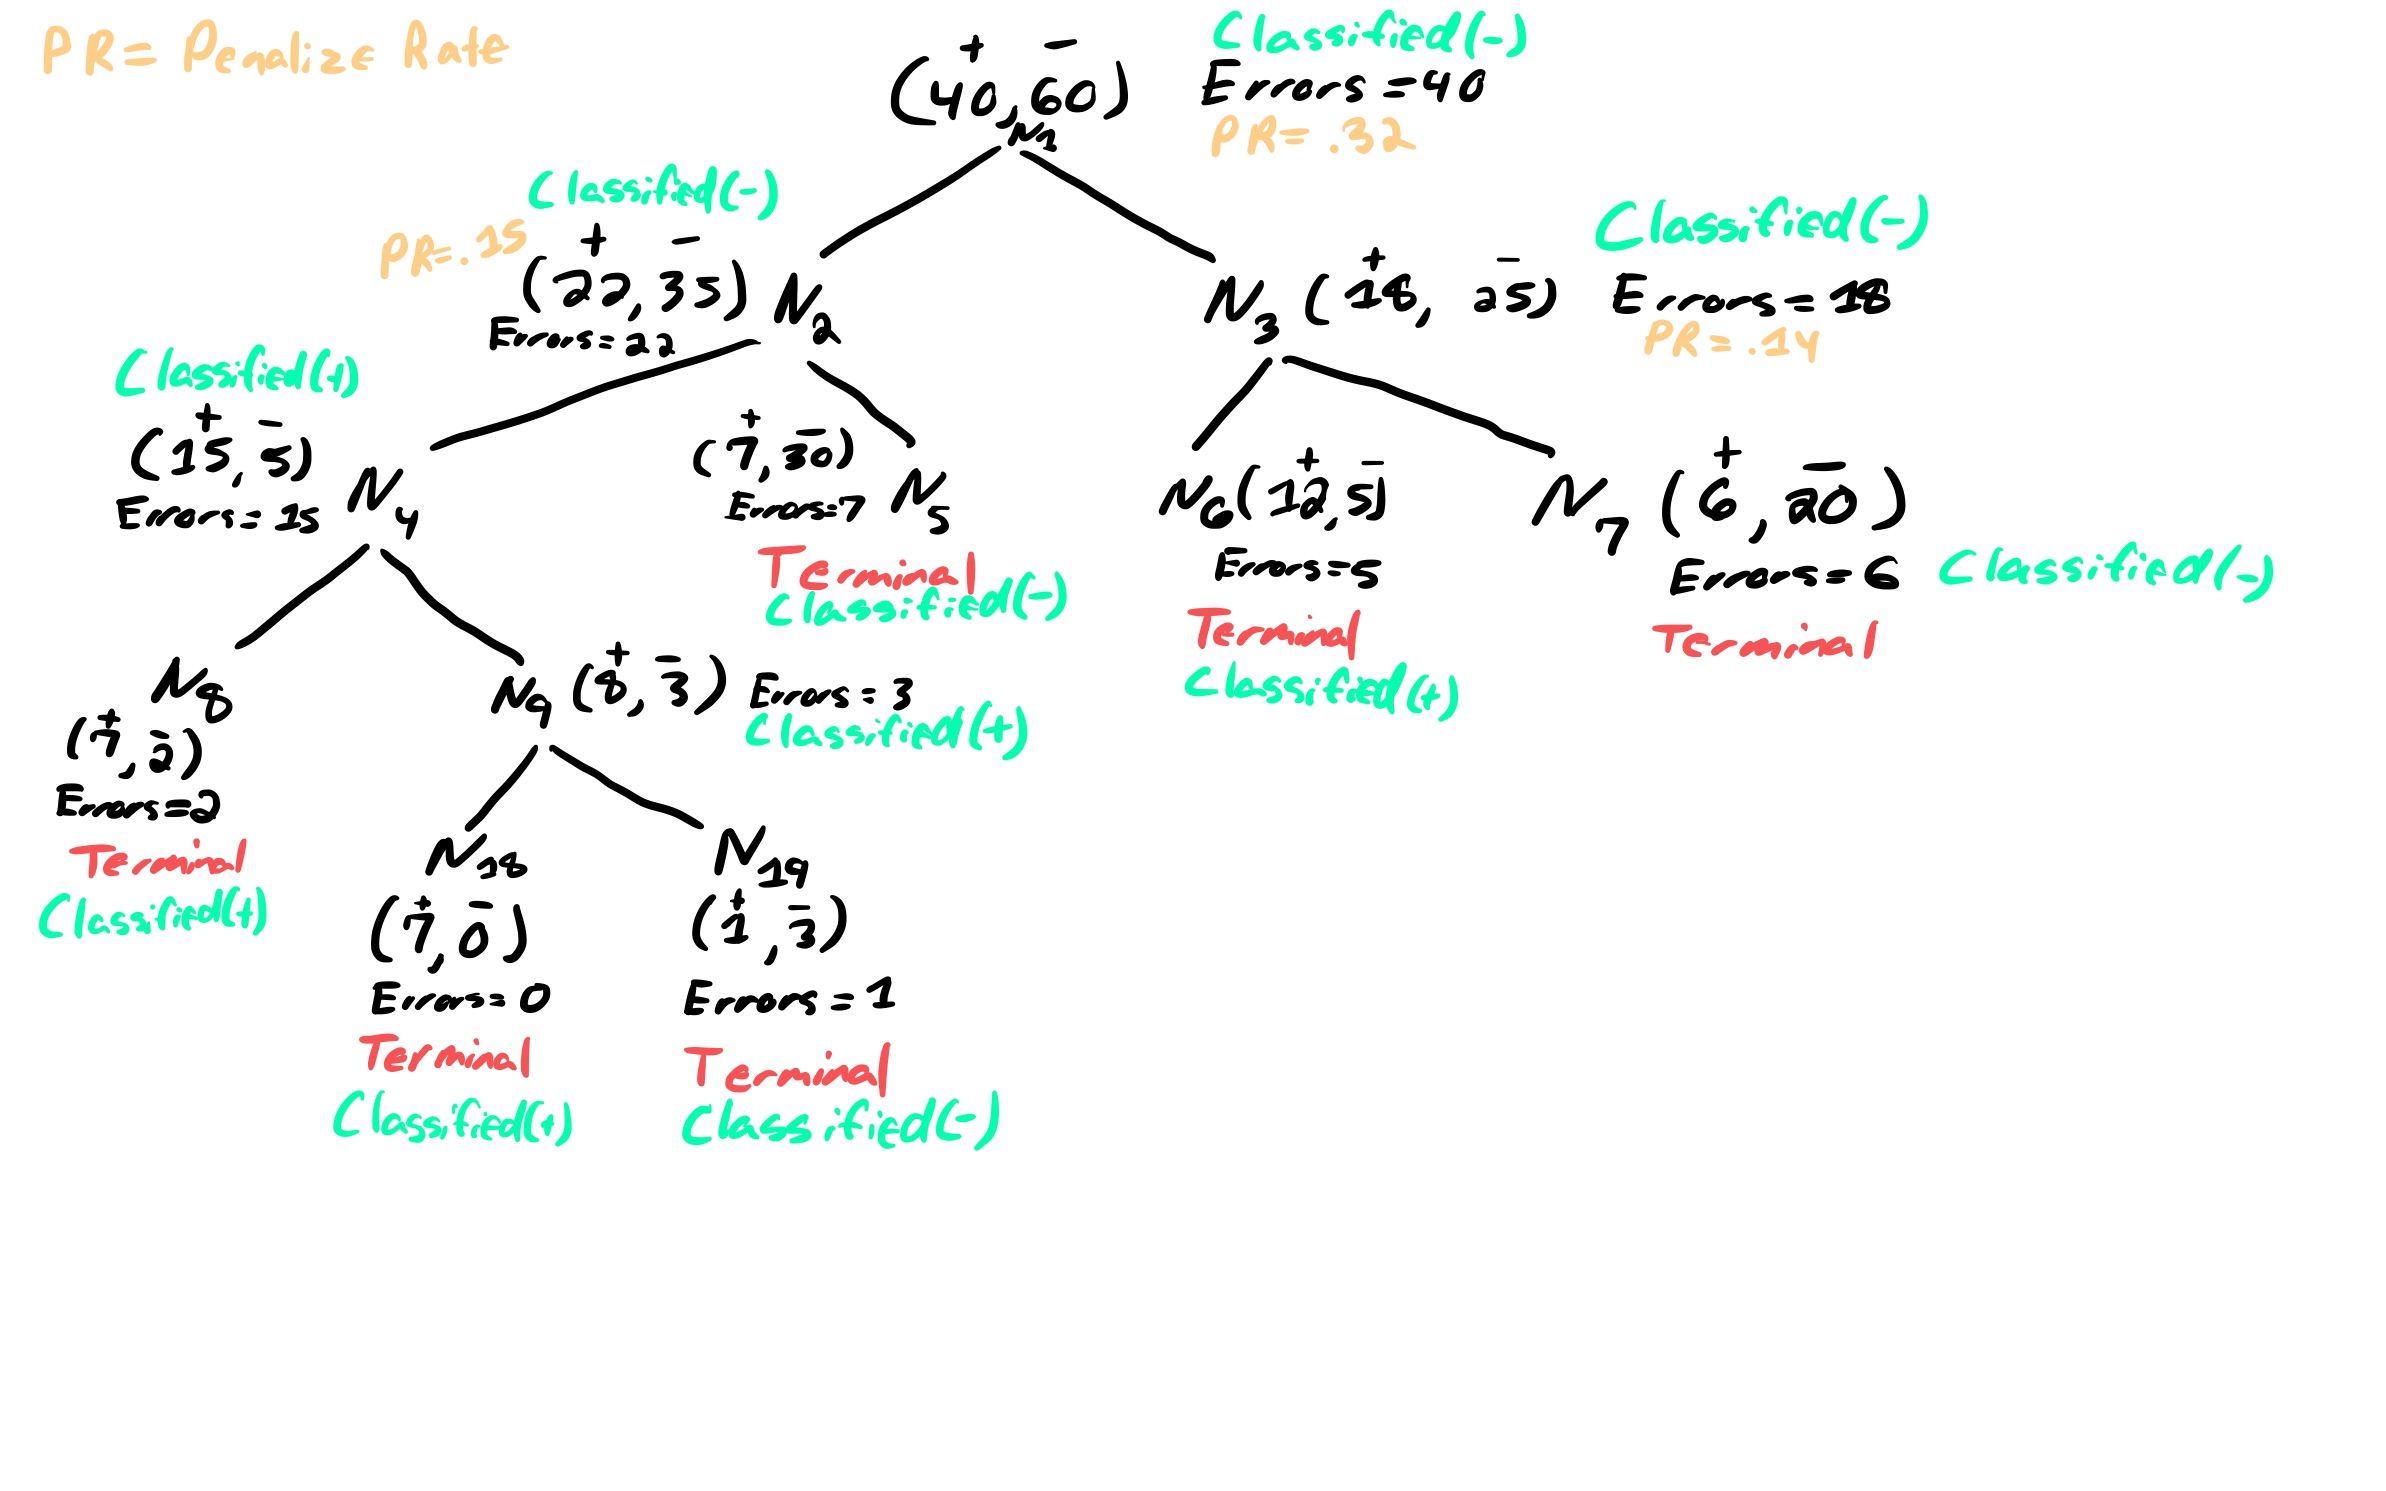 PR = Penalize Rate
+ −
(40, 60)
N1
Classified(-)
Errors = 40
PR = .32
Classified(-)
PR = .15
+ −
(22, 35) N2
Errors = 22
Classified(-)
+ −
N3 (18, 25) Errors = 18
PR = .14
Classified(+)
+ −
(15, 5) N4
Errors = 15
+ −
(7, 30) N5
Errors = 7
Terminal
Classified(-)
+ −
N6 (12, 5)
Errors = 5
Terminal
Classified(+)
+ −
N7 (6, 20)
Errors = 6 Classified(-)
Terminal
N8
+ −
(7, 2)
Errors = 2
Terminal
Classified(+)
+ −
N9 (8, 3) Errors = 3
Classified(+)
N18
+ −
(7, 0)
Errors = 0
Terminal
Classified(+)
N19
+ −
(1, 3)
Errors = 1
Terminal
Classified(-)